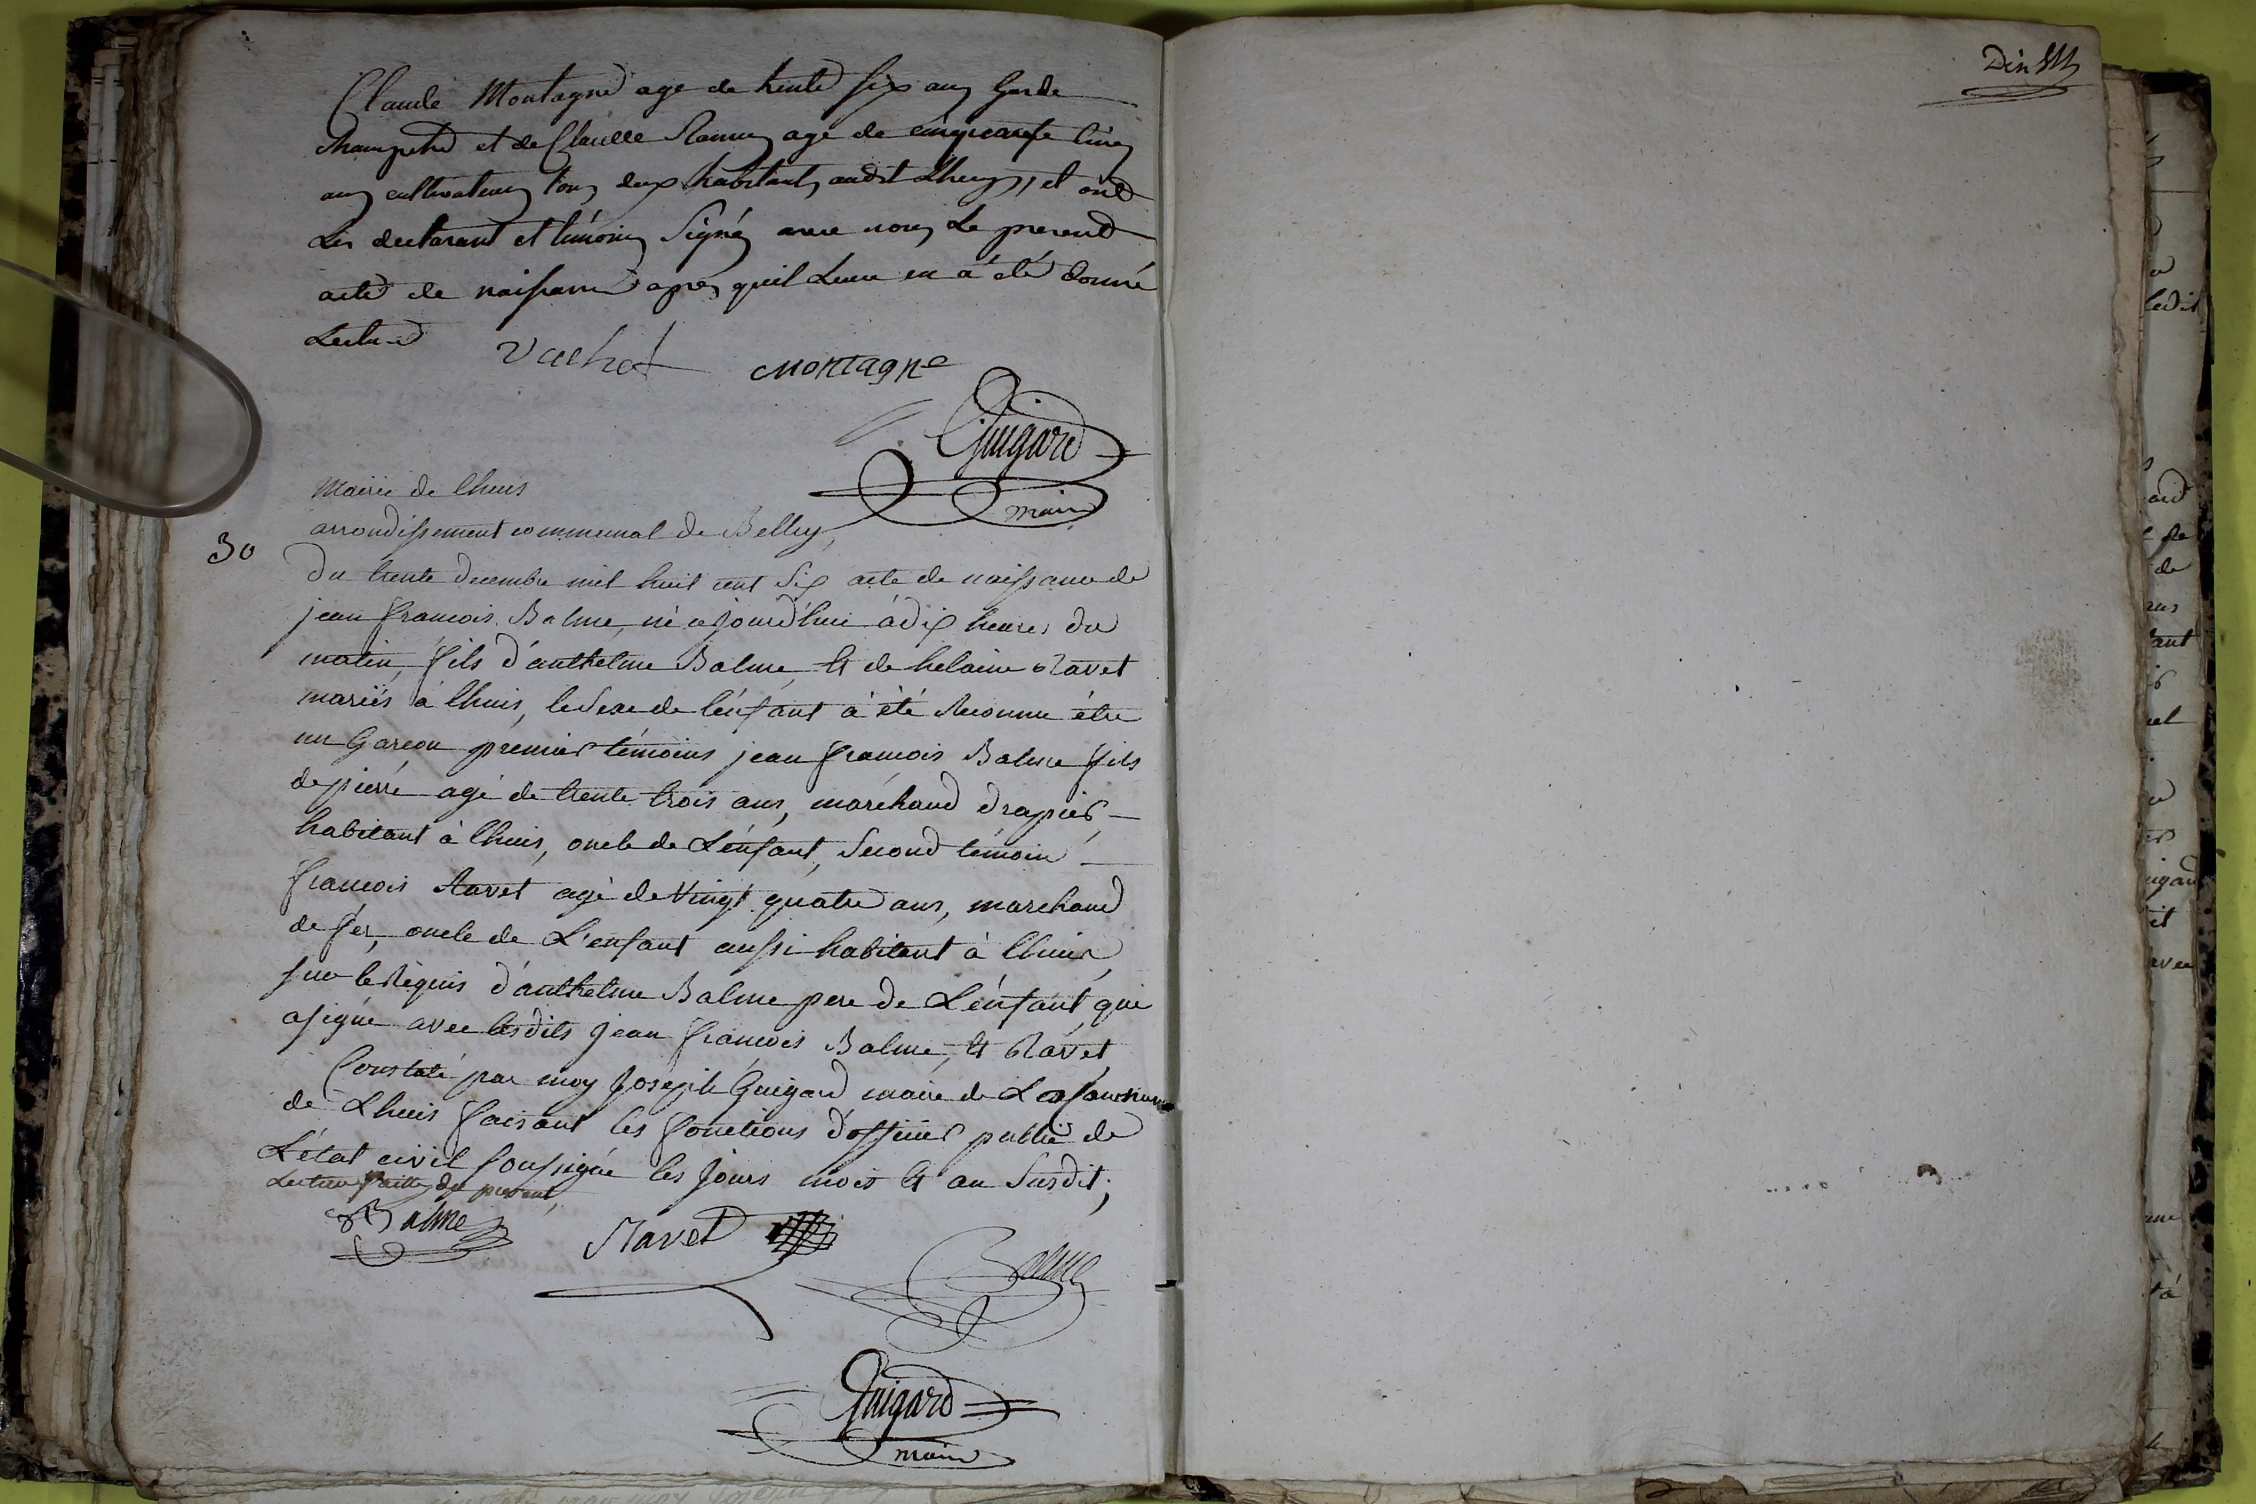 Claude Montagne age de trente six ans Garde
champetre et de Claude age de cinquante cinq
ans cultivateurs tous deux habitants audit Lhuys, et ont
Les declarant et témoins Signés avec nous Le present
acte de naissance apres qu'il Leur en a été donné
Lecture
Vachet Montagne
Guigard
maire
Mairie de lhuis
arrondissement communal de Belley,
30
Du trente decembre mil huit cent Six acte de naissance de
jean francois Balme, né ajourd'hui à dix heures du
matin, fils d'anthelme Balme, et de helaine Ravet
mariés à lhuis, le Sexe de l'énfant à été Reconnu être
un Garçon premier témoins jean francois Balme fils
de pierré agé de trente trois ans, maréhand drapier
habitant à lhuis, oncle de L'énfant, Second témoin
francois Ravet agé de Vingt quatre ans, marchand
de fer, oncle de L'enfant aussi habitant à lhuis,
sur le Réquis d'anthelme Balme pere de L'énfant, qui
a signé avec lesdits Jean francois Balme, et Ravet
Constaté par moy Joseph Guigard maire de La
de Lhuis faisant les fonctions d'officier public de
L'état civil soussigné les Jours mois et an Susdit;
Lecture faitte du present,
Balme
Ravet
Balme
Guigard
maire